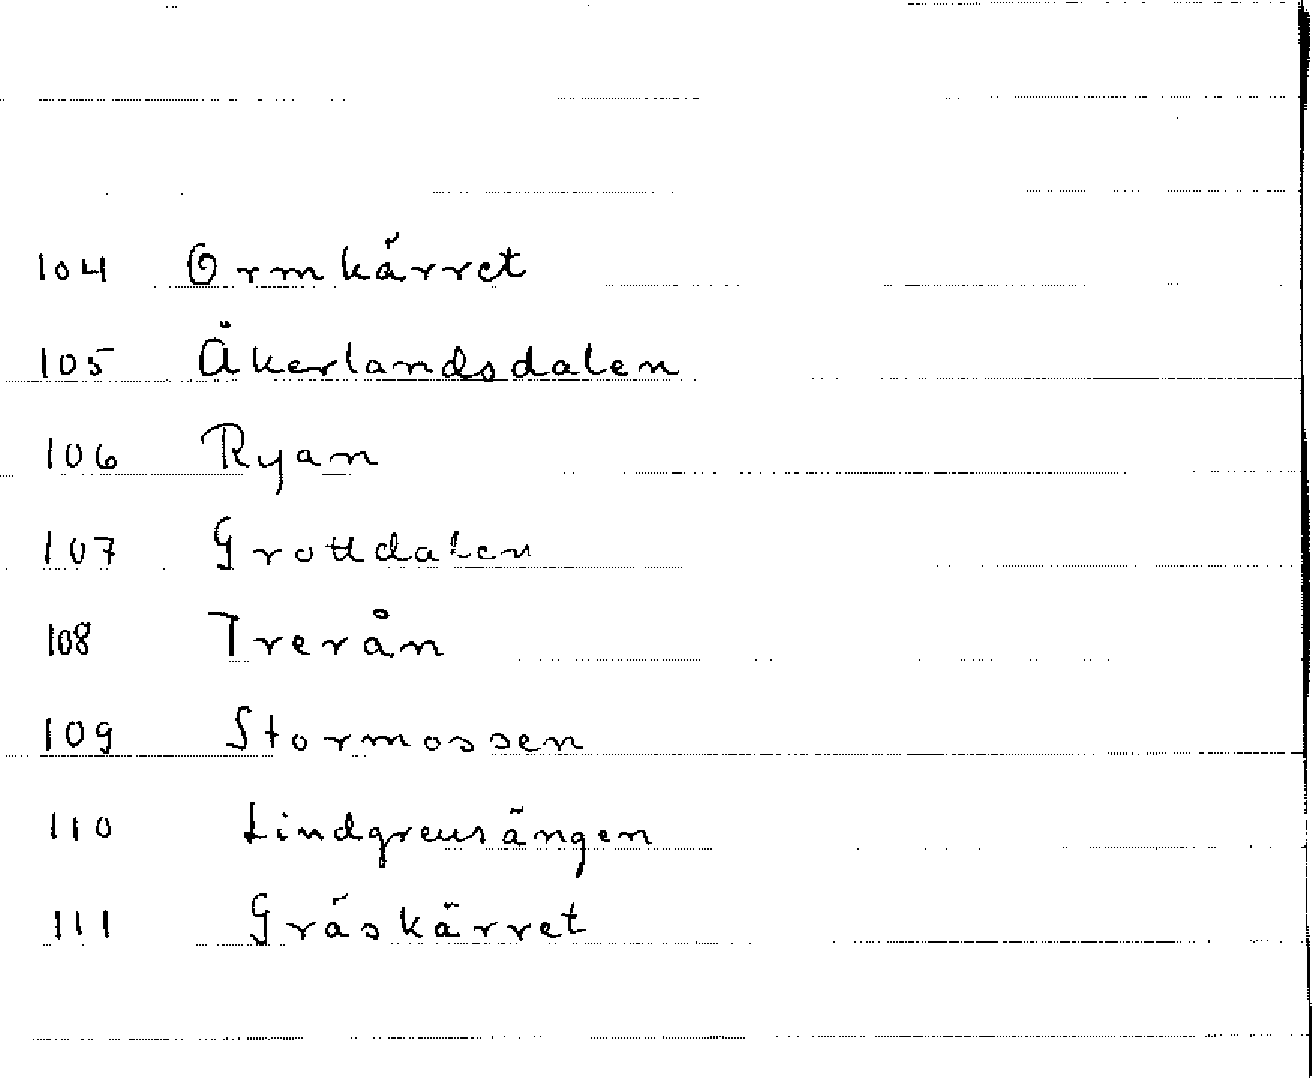 104 Ormkärret
105 Åkerlandsdalen
106 Ryan
107 Grottdalen
108 Trerån
109 Stormossen
110 Lindgrensängen
111 Gräskärret